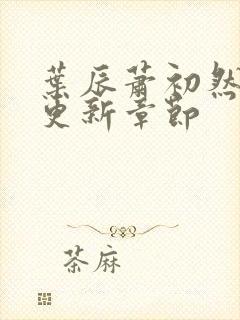 葉辰蕭初然
更新章節
茶麻